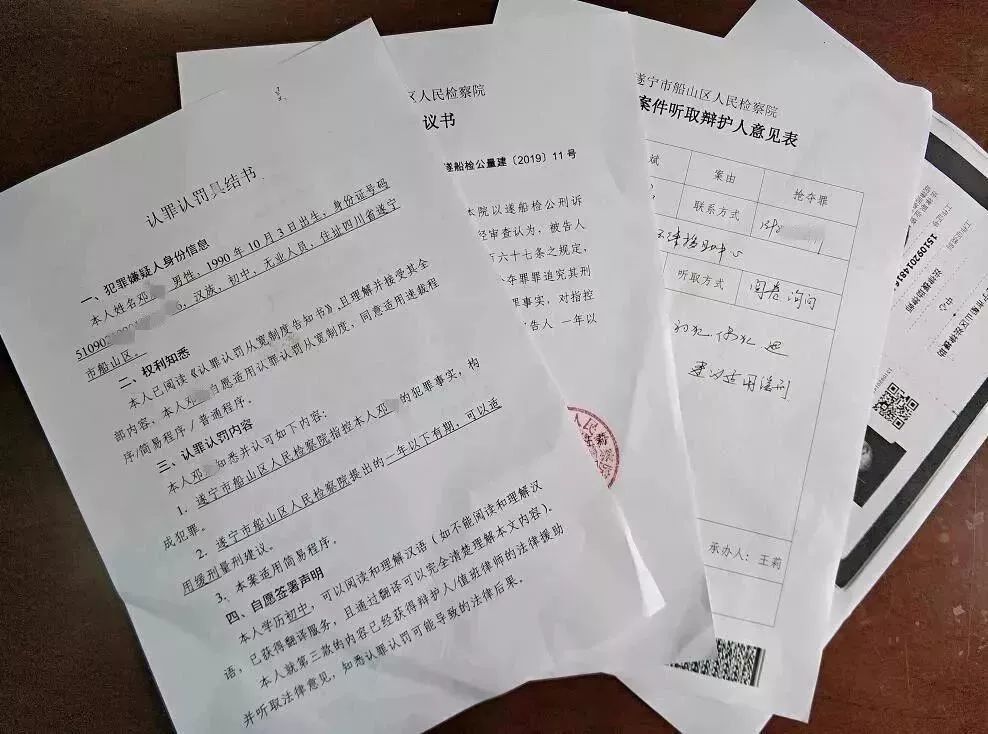 认罪认罚具结书
一、犯罪嫌疑人身份信息
本人姓名邓 男性，1990年10月3日出生，身份证号码
51090 6，汉族，初中，无业人员，住址四川省遂宁
市船山区。
二、权利知悉
本人已阅读《认罪认罚从宽制度告知书》，且理解并接受其全
部内容，本人邓 自愿适用认罪认罚从宽制度，同意适用速裁程
序/简易程序/普通程序。
三、认罪认罚内容
本人邓 知悉并认可如下内容：
1、遂宁市船山区人民检察院指控本人邓 的犯罪事实，构
成犯罪。
2、遂宁市船山区人民检察院提出的一年以下有期，可以适
用缓刑量刑建议。
3、本案适用简易程序。
四、自愿签署声明
本人学历初中，可以阅读和理解汉语（如不能阅读和理解汉
语，已获得翻译服务，且通过翻译可以完全清楚理解本文内容）。
本人就第三款的内容已经获得辩护人/值班律师的法律援助
并听取法律意见，知悉认罪认罚可能导致的法律后果。
区人民检察院
议书
遂船检公量建〔2019〕11号
院以遂船检公刑诉
经审查认为，被告人
六十七条之规定，
夺罪罪追究其刑
罪事实，对指控
告人 一年以
遂宁市船山区人民检察院
案件听取辩护人意见表
斌
案由
抢夺罪
联系方式
法律援助中心
听取方式
阅卷 询问
初犯、偶犯
建议适用缓刑
承办人：王莉
工作证号
151092014816
法律援助律师
中心